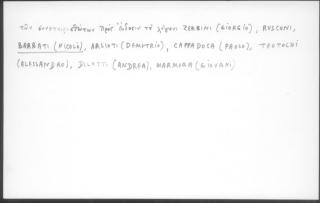 τῶν πρός τὸ ZERBINI (GIORGIO), RUSCONI,
BARBATI (NICOLÒ), ARLIOTI (DEMETRIO), CAPPADOCA (PAOLO), TEOTOCHI
(ALESSANDRO), DILOTTI (ANDREA), MARMORA (GIOVANI)